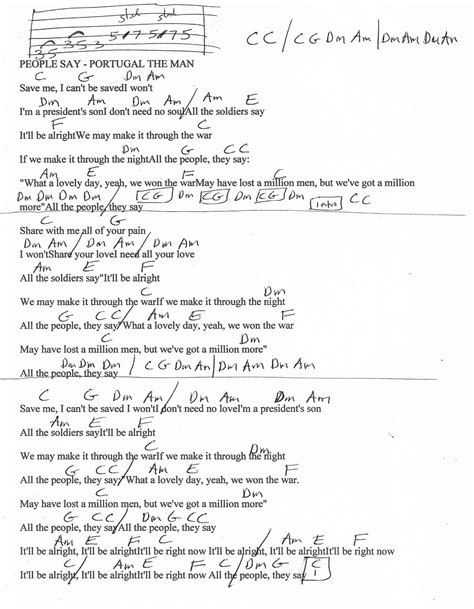 slide slide
35 353 5175 175 CC / CG Dm Am | Dm Am Dm Am
PEOPLE SAY - PORTUGAL THE MAN
C G Dm Am
Save me, I can't be savedI won't
Dm Am Dm Am / Am E
I'm a president's sonI don't need no soul/All the soldiers say
F C
It'll be alrightWe may make it through the war
Dm G CC
If we make it through the nightAll the people, they say:
Am E F C
"What a lovely day, yeah, we won the warMay have lost a million men, but we've got a million
Dm Dm Dm Dm / CG Dm CG Dm CG Dm Intro CC
more"All the people, they say
C G
Share with me all of your pain
Dm Am / Dm Am / Dm Am
I won'tShare your loveI need all your love
Am E F
All the soldiers say"It'll be alright
C Dm
We may make it through the warIf we make it through the night
G CC / Am E F
All the people, they say/"What a lovely day, yeah, we won the war
C Dm
May have lost a million men, but we've got a million more"
Dm Dm Dm / CG Dm Am | Dm Am Dm Am
All the people, they say
C G Dm Am / Dm Am Dm Am
Save me, I can't be saved I won'tI don't need no loveI'm a president's son
Am E F
All the soldiers sayIt'll be alright
C Dm
We may make it through the warIf we make it through the night
G CC / Am E F
All the people, they say/"What a lovely day, yeah, we won the war.
C Dm
May have lost a million men, but we've got a million more"
G CC / Dm G CC
All the people, they sayAll the people, they say
Am E F C / Am E F
It'll be alright, It'll be alrightIt'll be right now It'll be alright, It'll be alrightIt'll be right now
C / Am E F C / Dm G C
It'll be alright, It'll be alrightIt'll be right now All the people, they say